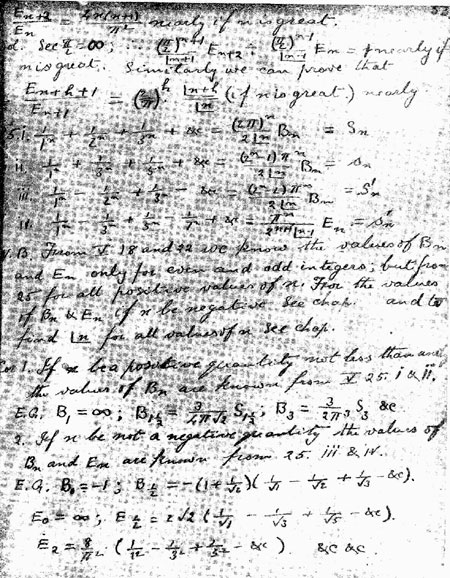 E_{n+2}/E_n = 4n(n+1)/π² nearly if n is great.
Sec π/2 = ∞; ∴ (π/2)^{n+1}/|n+1 E_{n+2} = (π/2)^{n-1}/|n-1 E_n = 1 nearly if
n is great. Similarly we can prove that
E_{n+h+1}/E_{n+1} = (2/π)^h |n+h/|n (if n is great.) nearly
25 i. 1/1^n + 1/2^n + 1/3^n + &c = (2π)^n/2|n B_n = S_n
ii. 1/1^n + 1/3^n + 1/5^n + &c = (2^n-1)π^n/2|n B_n = s_n
iii. 1/1^n - 1/2^n + 1/3^n - &c = (2^{n-1}-1)π^n/|n B_n = S'_n
iv. 1/1^n - 1/3^n + 1/5^n - 1/7^n + &c = π^n/2^{n+1}|n-1 E_n = s'_n
N.B. From V 18 and 22 we know the values of B_n
and E_n only for even and odd integers; but from
25 for all positive values of n. For the values
of B_n & E_n if n be negative see chap. and to
find |n for all values of n see chap.
Cor 1. If n be a positive quantity not less than
the values of B_n are known from V 25. i & ii.
E.G. B_1 = ∞; B_{1½} = 3/4π√2 S_{1½}; B_3 = 3/2π³ S_3 &c
2. If n be not a negative quantity the values of
B_n and E_n are known from 25. iii & iv.
E.G. B_0 = -1; B_{½} = -(1+1/√2)(1/√1 - 1/√2 + 1/√3 - &c).
E_0 = ∞; E_{½} = 2√2 (1/√1 - 1/√3 + 1/√5 - &c).
E_2 = 8/π² (1/1² - 1/3² + 1/5² - &c) &c &c.